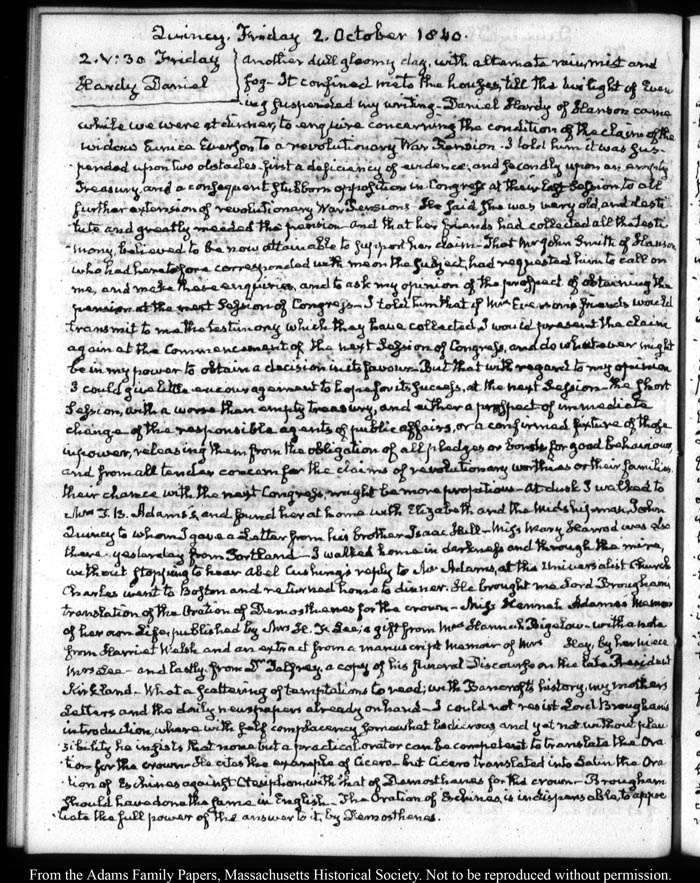 Quincy. Friday 2. October 1840.
2. V:30 Friday
Hardy Daniel
Another dull gloomy day, with alternate rain, mist and
fog — It confined me to the house, till the twilight of Even-
ing suspended my writing — Daniel Hardy of Hanson came
while we were at dinner, to enquire concerning the condition of the claim of the
widow Eunice Everson to a revolutionary War Pension. I told him it was sus-
pended upon two obstacles. first a deficiency of evidence; and secondly upon an empty
Treasury, and a consequent stubborn opposition in Congress at their last Session to all
further extension of revolutionary War Pensions — He said she was very old, and desti-
tute and greatly needed the pension — and that her friends had collected all the testi-
mony, believed to be now attainable to support her claim — That Mr John Smith of Hanson
who had heretofore corresponded with me on the subject, had requested him to call on
me, and make these enquiries, and to ask my opinion of the prospect of obtaining the
pension at the next Session of Congress — I told him that if Mrs Everson's friends would
transmit to me the testimony which they have collected, I would present the claim
again at the Commencement of the next Session of Congress, and do whatever might
be in my power to obtain a decision in its favour — But that with regard to my opinion
I could give little encouragement to hope for its success, at the next Session — the short
Session, with a worse than empty treasury, and either a prospect of immediate
change of the responsible agents of public affairs, or a confirmed fixture of those
in power, releasing them from the obligation of all pledges or bonds for good behaviour,
and from all tender concern for the claims of revolutionary worthies or their families.
their chance with the next Congress, might be more propitious — At dusk I walked to
Mrs T. B. Adams's, and found her at home with Elizabeth and the Midshipman John
Quincy to whom I gave a Letter from his brother Isaac Hull — Miss Mary Harrod was also
there. yesterday from Portland — I walked home in darkness and through the mire,
without stopping to hear Abel Cushing's reply to Mr Adams, at the Universalist Church
Charles went to Boston and returned home to dinner. He brought me Lord Brougham's
translation of the Oration of Demosthenes for the crown — Miss Hannah Adams's Memoir
of her own Life, published by Mrs H. F. Lee; a gift from Mrs Hannah Bigelow — with a note
from Harriet Welsh and an extract from a manuscript Memoir of Mrs Hay, by her niece
Mrs Lee — and lastly, from Dr Palfrey a copy of his funeral Discourse on the late President
Kirkland — What a scattering of temptations to read; with Bancroft's history, my mother's
Letters and the daily newspapers already on hand — I could not resist Lord Brougham's
introduction, where with self complacency somewhat ludicrous and yet not without plau-
sibility he insists that none but a practical orator can be competent to translate the Ora-
tion for the crown — He cites the example of Cicero — but Cicero translated into Latin the Ora-
tion of Eschines against Ctesiphon, with that of Demosthenes for the crown — Brougham
should have done the same in English — The Oration of Eschines, is indispensable, to appre-
ciate the full power of the answer to it, by Demosthenes.
From the Adams Family Papers, Massachusetts Historical Society. Not to be reproduced without permission.